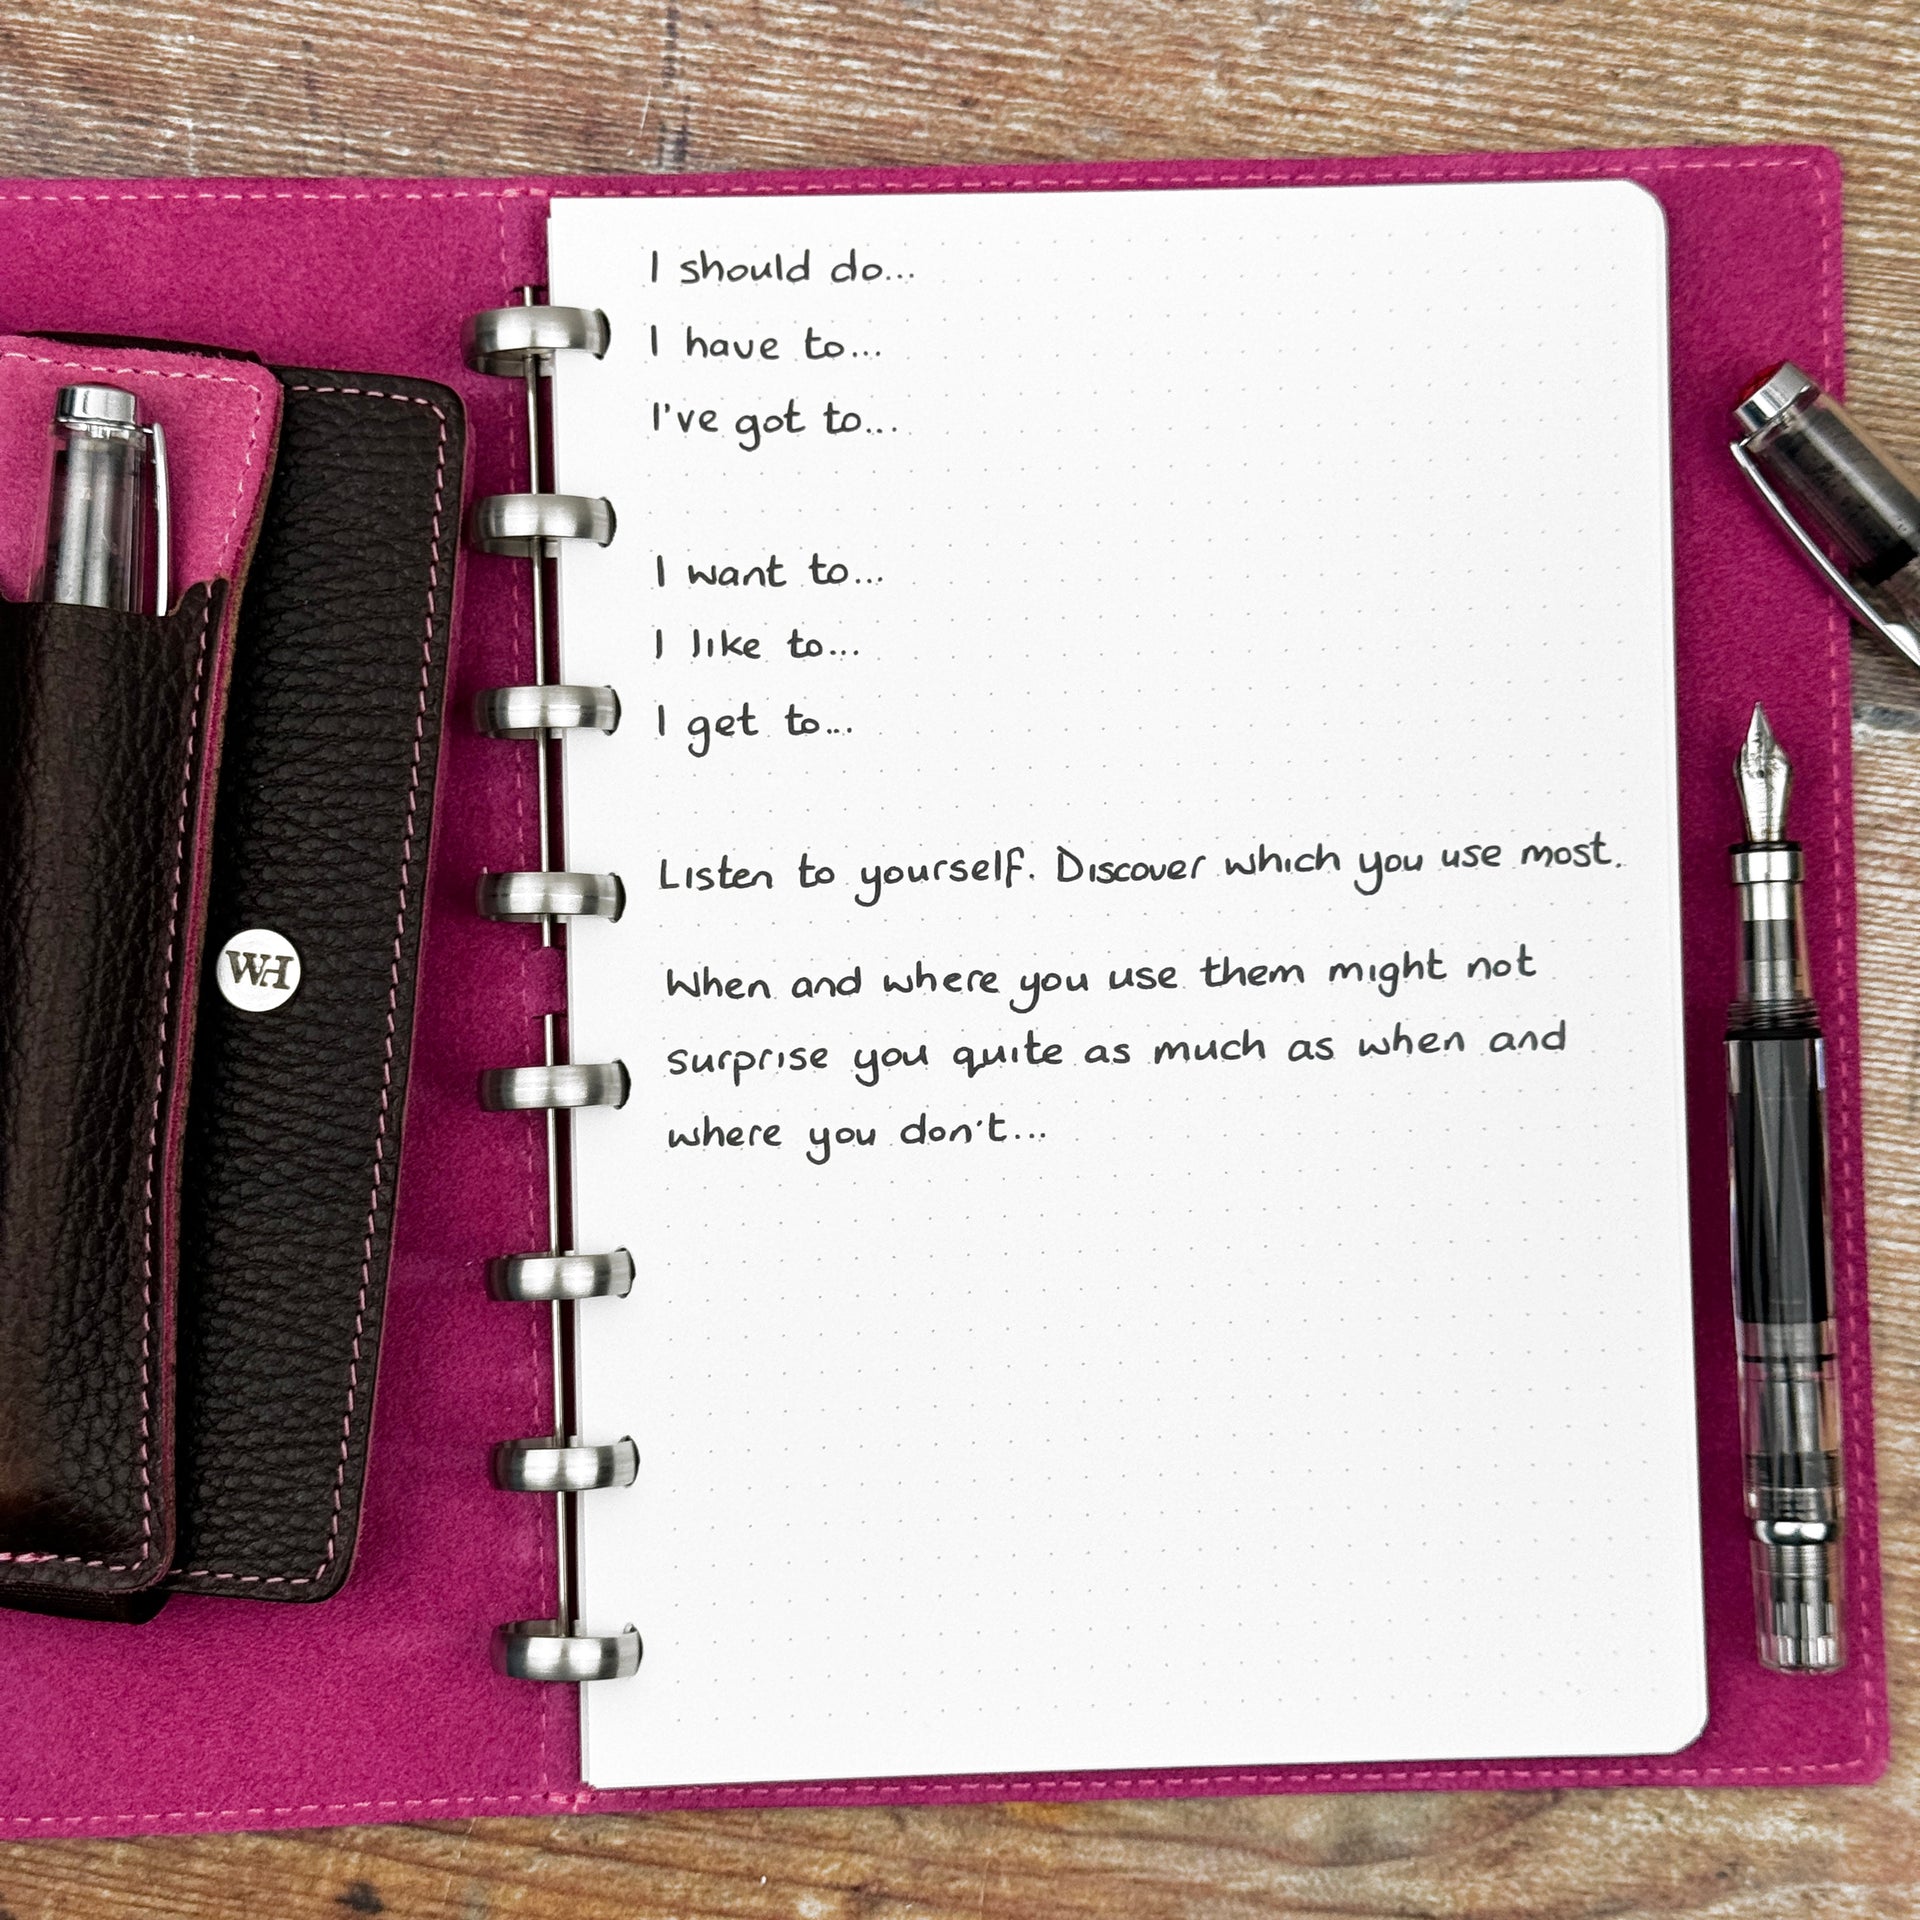 I should do...
I have to...
I've got to...
I want to...
I like to...
I get to...
Listen to yourself. Discover which you use most.
When and where you use them might not
surprise you quite as much as when and
where you don't...
WH